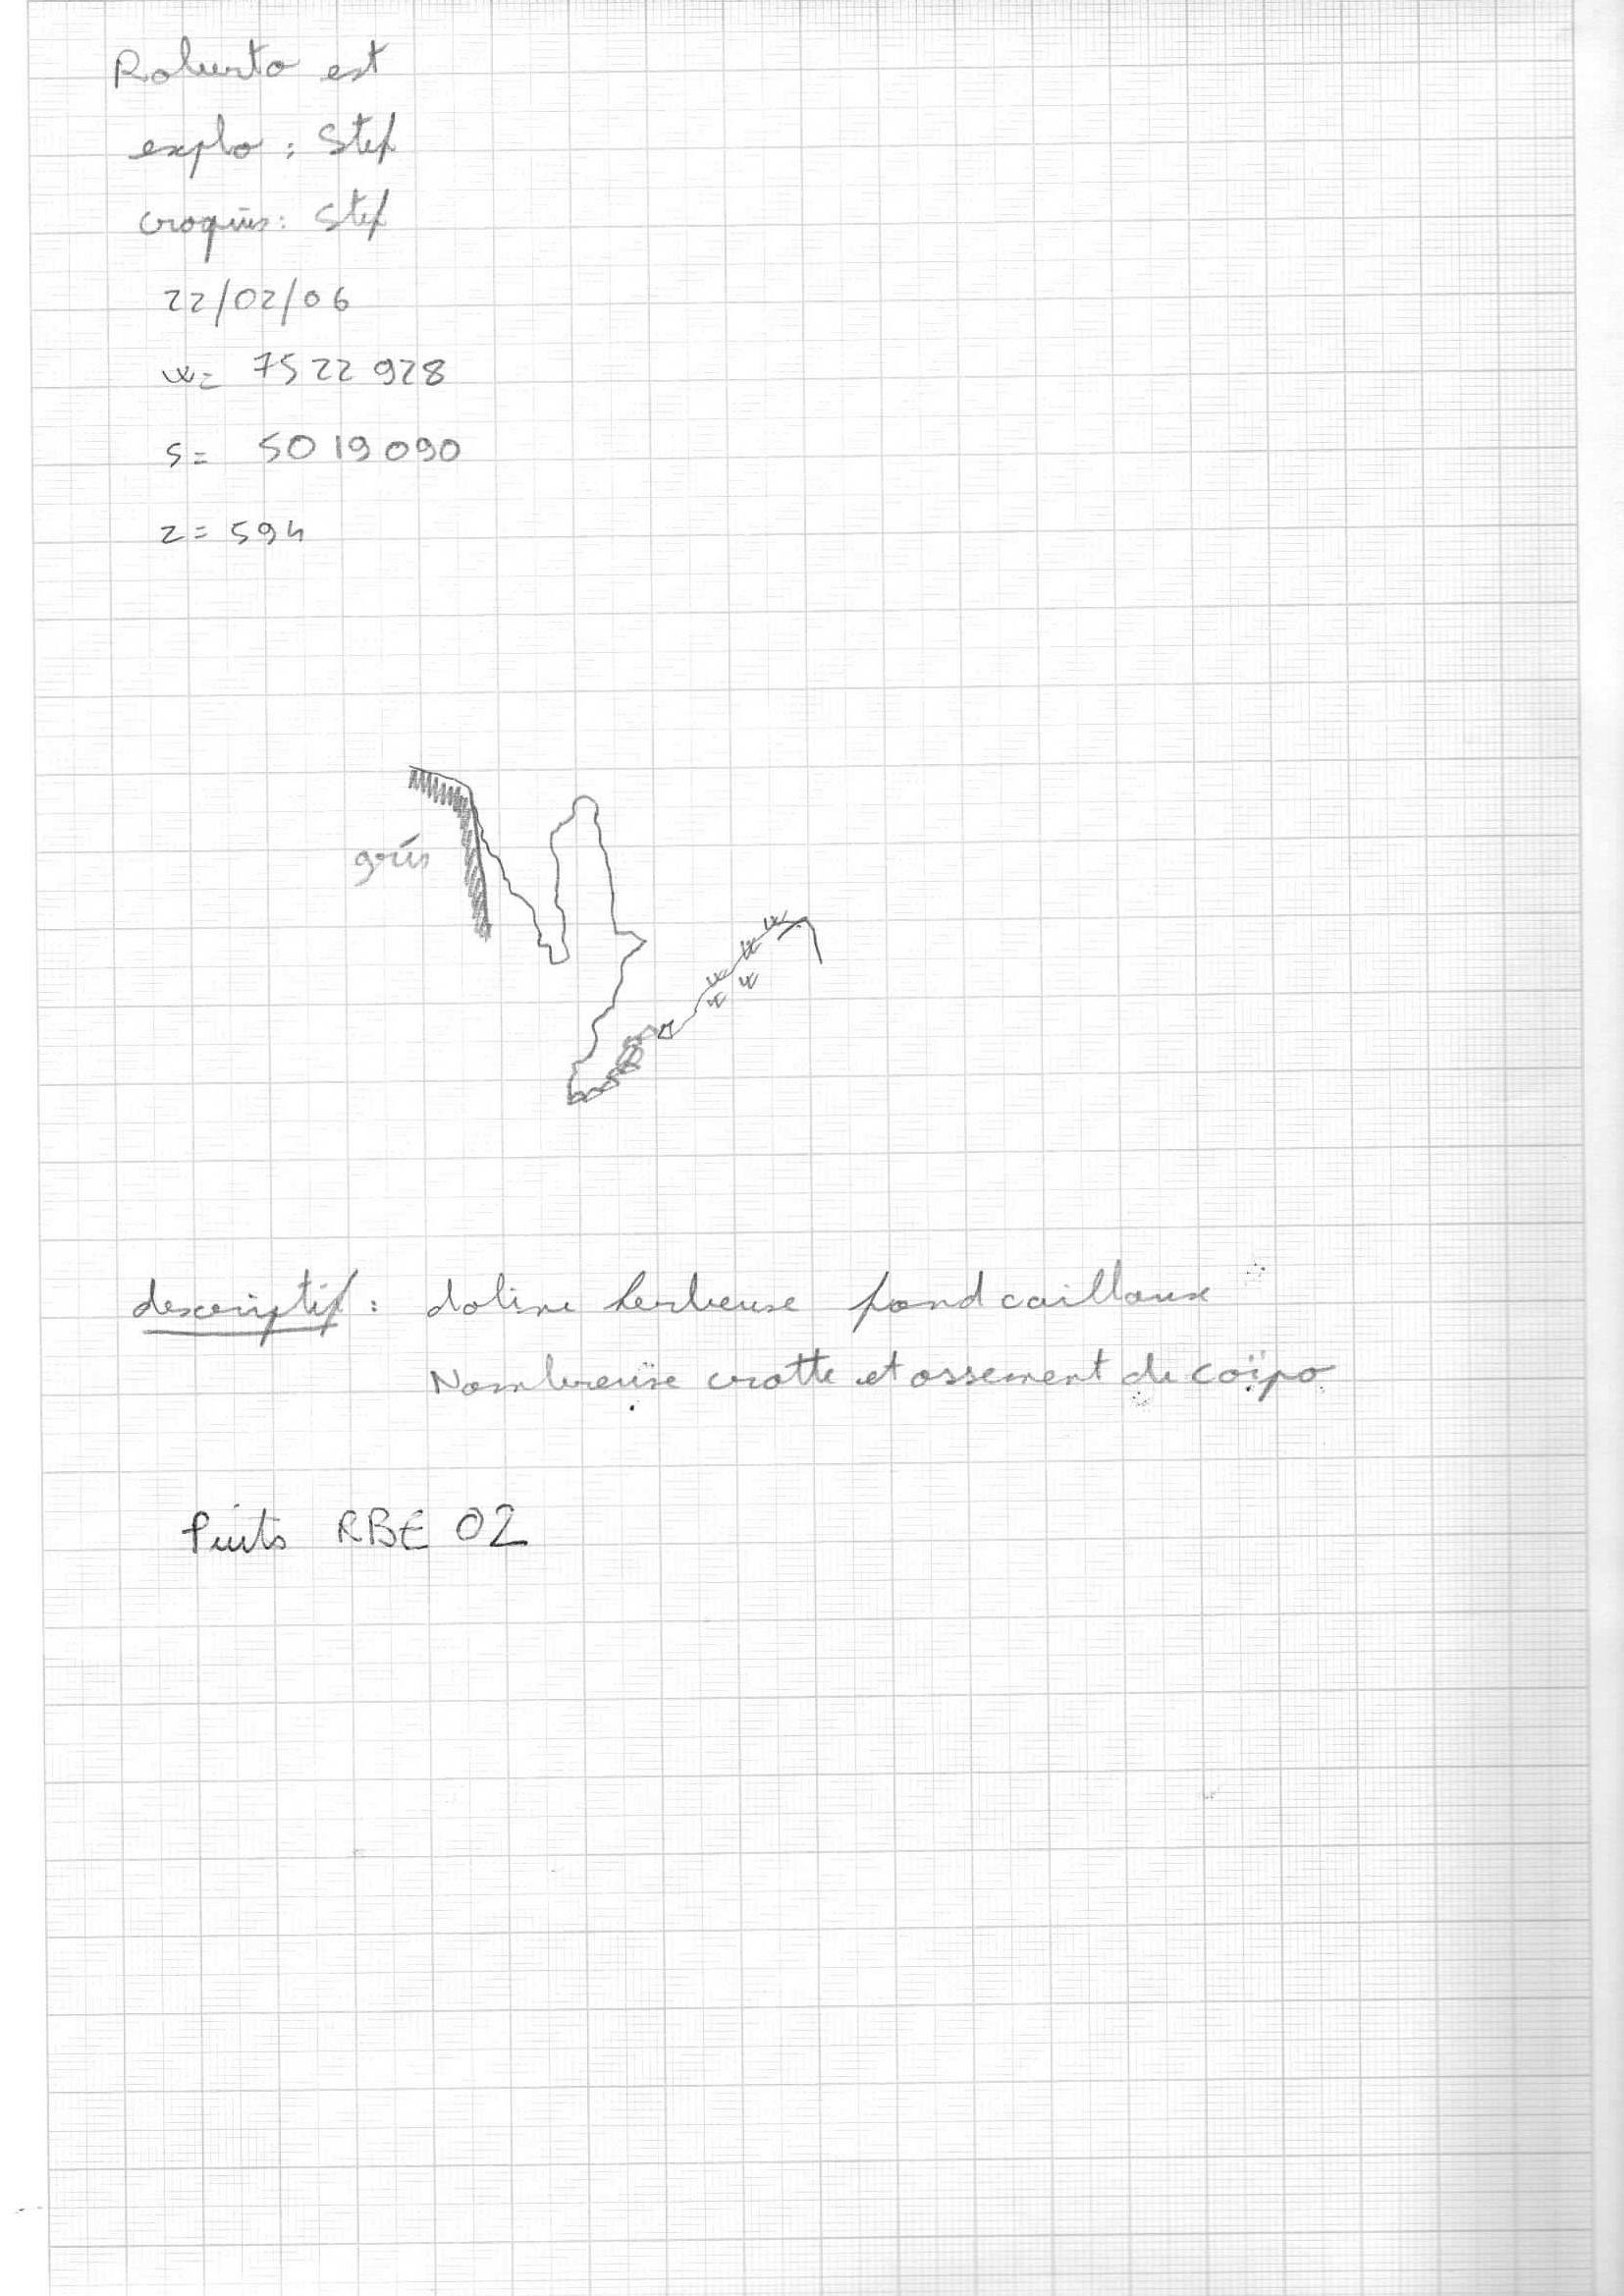 Roberto est
explo : Stef
croquis : Stef
22/02/06
w= 7522928
s= 5019090
z= 594
grés
descriptif : doline herbeuse fond cailloux
Nombreuse crotte et ossement de coïpo
Puits RBE 02